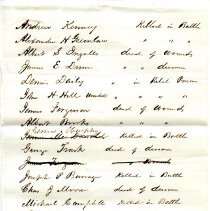 Andrew Kenney Killed in Battle
Alexander H Greenlaw " " "
Albert S Ingalls died of Wounds
James E Dunn " " disease
Denis Daily " in Rebel Prison
John H Hill Wounded " " "
James Ferguson died of Wounds
Albert " " "
James Murphy
killed in Battle
George Frank died of disease
James Ferguson " Wounds
Joseph P Burrage Killed in Battle
Chas G Moore died of disease
Michael Campbell Killed in Battle